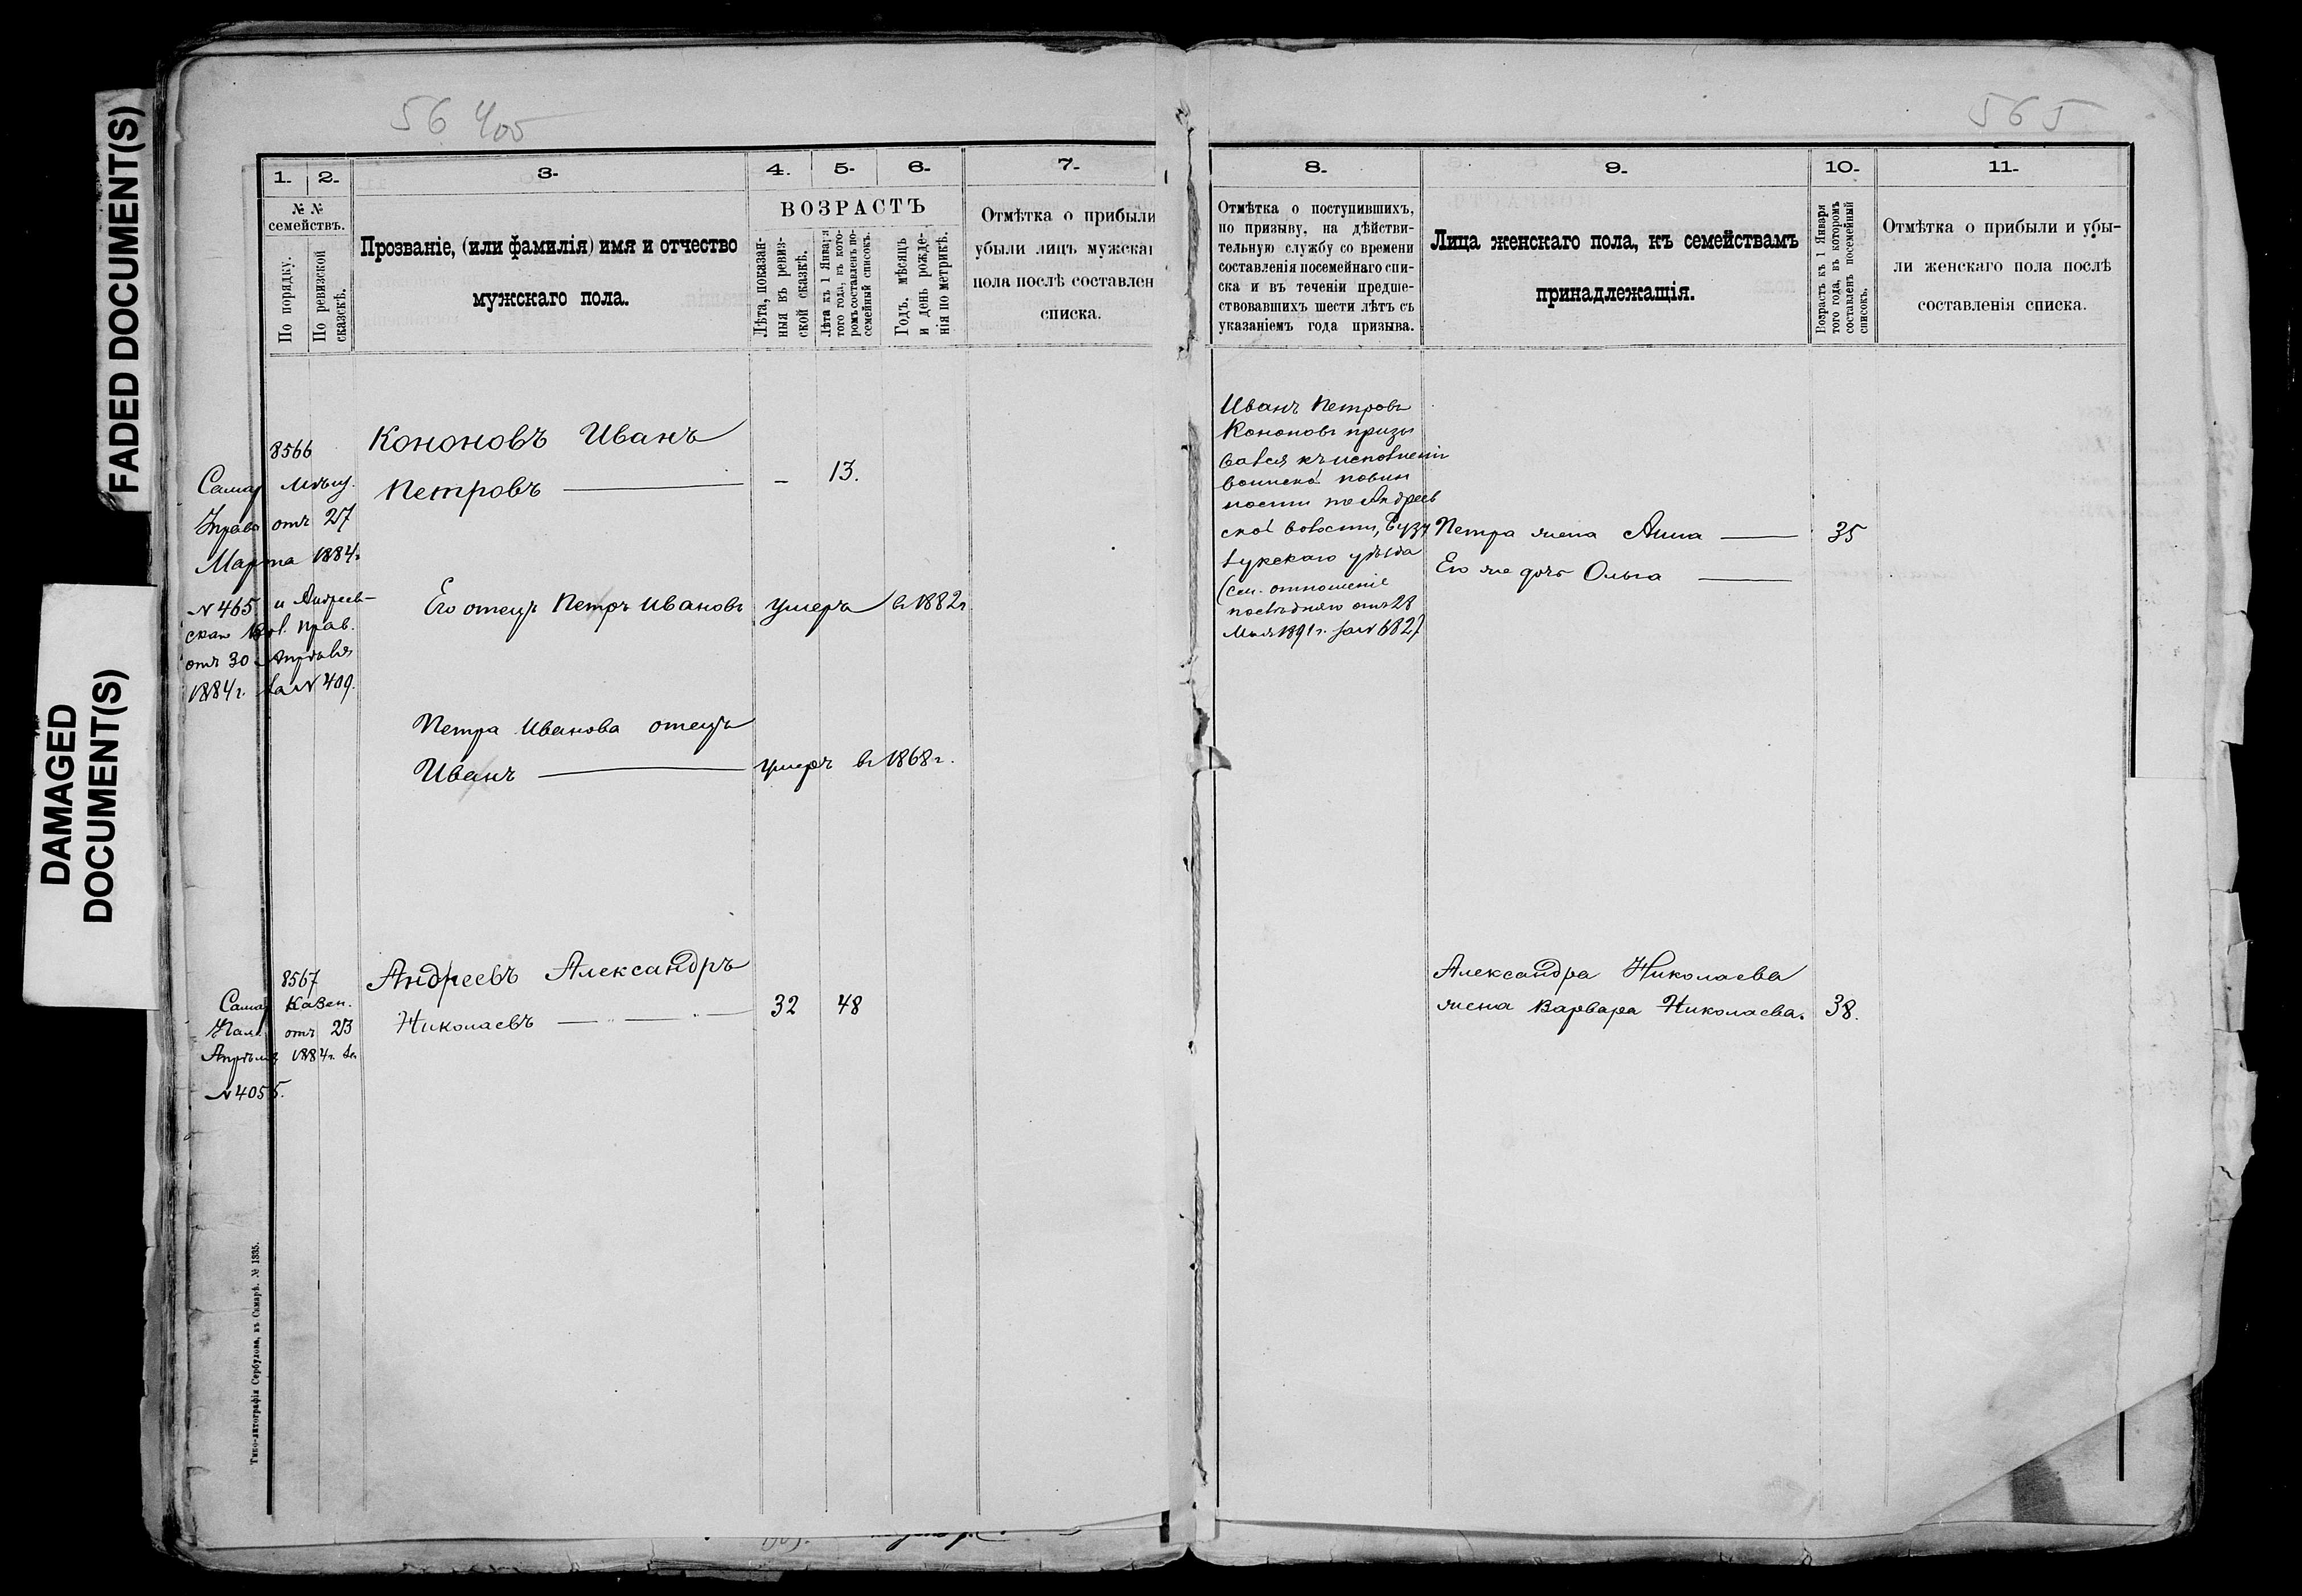 FADED DOCUMENT(S)
DAMAGED
DOCUMENT(S)
565
1.
2.
3.
4.
5.
6.
7.
№ №
семействъ.
По порядку.
По ревизской
сказкѣ.
Прозваніе, (или фамилія) имя и отчество
мужскаго пола.
ВОЗРАСТЪ
Лѣта, показан-
ныя въ ревиз-
ской сказкѣ.
Лѣта къ 1 Января
того года, въ кото-
ромъ составленъ по-
семейный списокъ.
Годъ, мѣсяцъ
и день рожде-
нія по метрикѣ.
Отмѣтка о прибыли
убыли лицъ мужскаг
пола послѣ составлен
списка.
8566
Самар Мѣщ.
Управ отъ 27
Марта 1884г
№ 465 и Андреев-
скаго Вол. прав.
отъ 30 Апрѣля
1884г. за № 409.
Кононовъ Иванъ
Петровъ
— 13.
Его отецъ Петръ Ивановъ умеръ въ 1882г
Петра Иванова отецъ
Иванъ умеръ въ 1868г.
8567
Самар Казен.
Пал. отъ 23
Апрѣля 1884г. за
№ 4055.
Андреевъ Александръ
Николаевъ
32 48
Типо-литографія Сербулова, въ Самарѣ. № 1335.
8.
9.
10.
11.
Отмѣтка о поступившихъ,
по призыву, на дѣйстви-
тельную службу со времени
составленія посемейнаго спи-
ска и въ теченіи предше-
ствовавшихъ шести лѣтъ съ
указаніемъ года призыва.
Лица женскаго пола, къ семействамъ
принадлежащія.
Возрастъ къ 1 Января
того года, въ которомъ
составленъ посемейный
списокъ.
Отмѣтка о прибыли и убы-
ли женскаго пола послѣ
составленія списка.
Иванъ Петровъ
Кононовъ призы
вался къ исполненію
воинской повин
ности по Андреев
ской волости, Бузу
лукскаго уѣзда
(см. отношеніе
послѣдняго отъ 28
Мая 1891г. за № 682)
Петра жена Анна 35
Его же дочь Ольга
Александра Николаева
жена Варвара Николаева. 38.